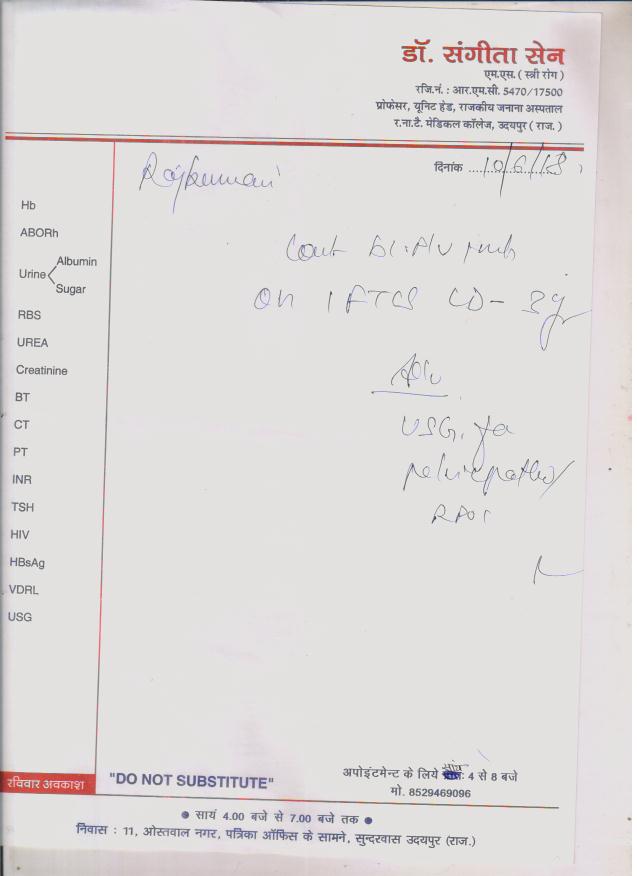 डॉ. संगीता सेन
एम.एस. ( स्त्री रोग )
रजि.नं. : आर.एम.सी. 5470/17500
प्रोफेसर, यूनिट हेड, राजकीय जनाना अस्पताल
र.ना.टै. मेडिकल कॉलेज, उदयपुर ( राज. )
दिनांक 10/6/18
Rajkumari
Hb
ABORh
Urine Albumin
Sugar
RBS
UREA
Creatinine
BT
CT
PT
INR
TSH
HIV
HBsAg
VDRL
USG
on LSCS CD - 3
Adv
USG. for
रविवार अवकाश
"DO NOT SUBSTITUTE"
अपोइंटमेन्ट के लिये सांय: 4 से 8 बजे
मो. 8529469096
● सायं 4.00 बजे से 7.00 बजे तक ●
निवास : 11, ओस्तवाल नगर, पत्रिका ऑफिस के सामने, सुन्दरवास उदयपुर (राज.)